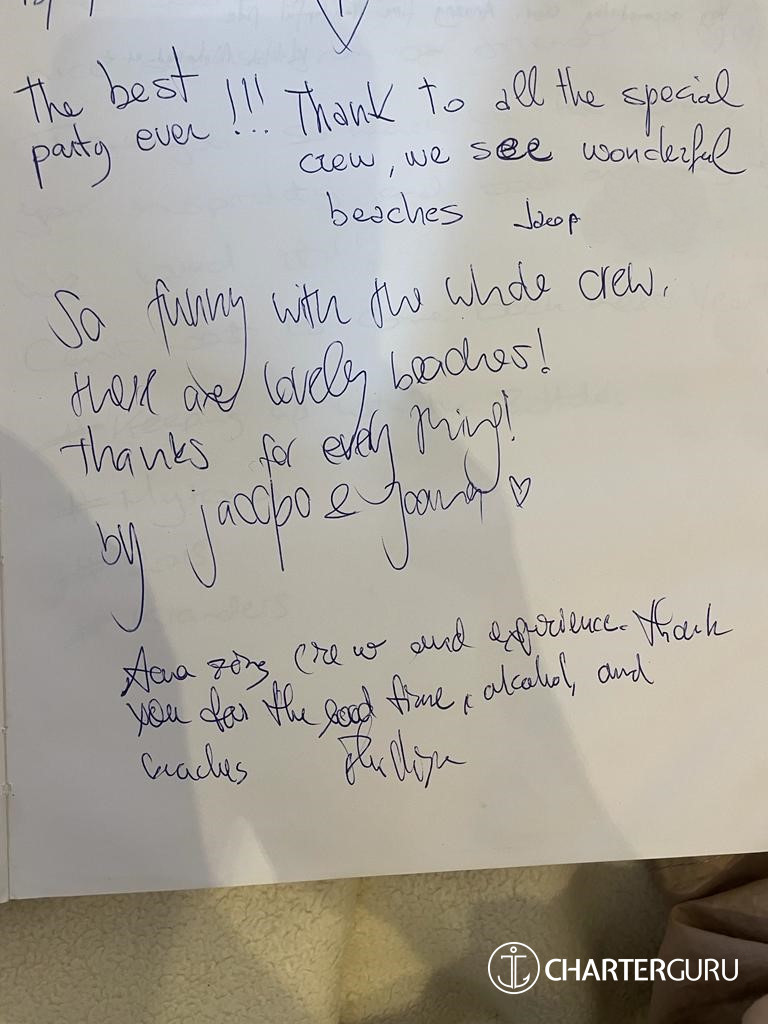 The best
party ever !!!
Thank to all the special
crew, we see wonderful
beaches
So funny with the whole crew.
there are lovely beaches!
thanks for every thing!
by jacopo & Joanna ♡
Amazing crew and experience. Thank
you for the good time, alcohol, and
CHARTERGURU